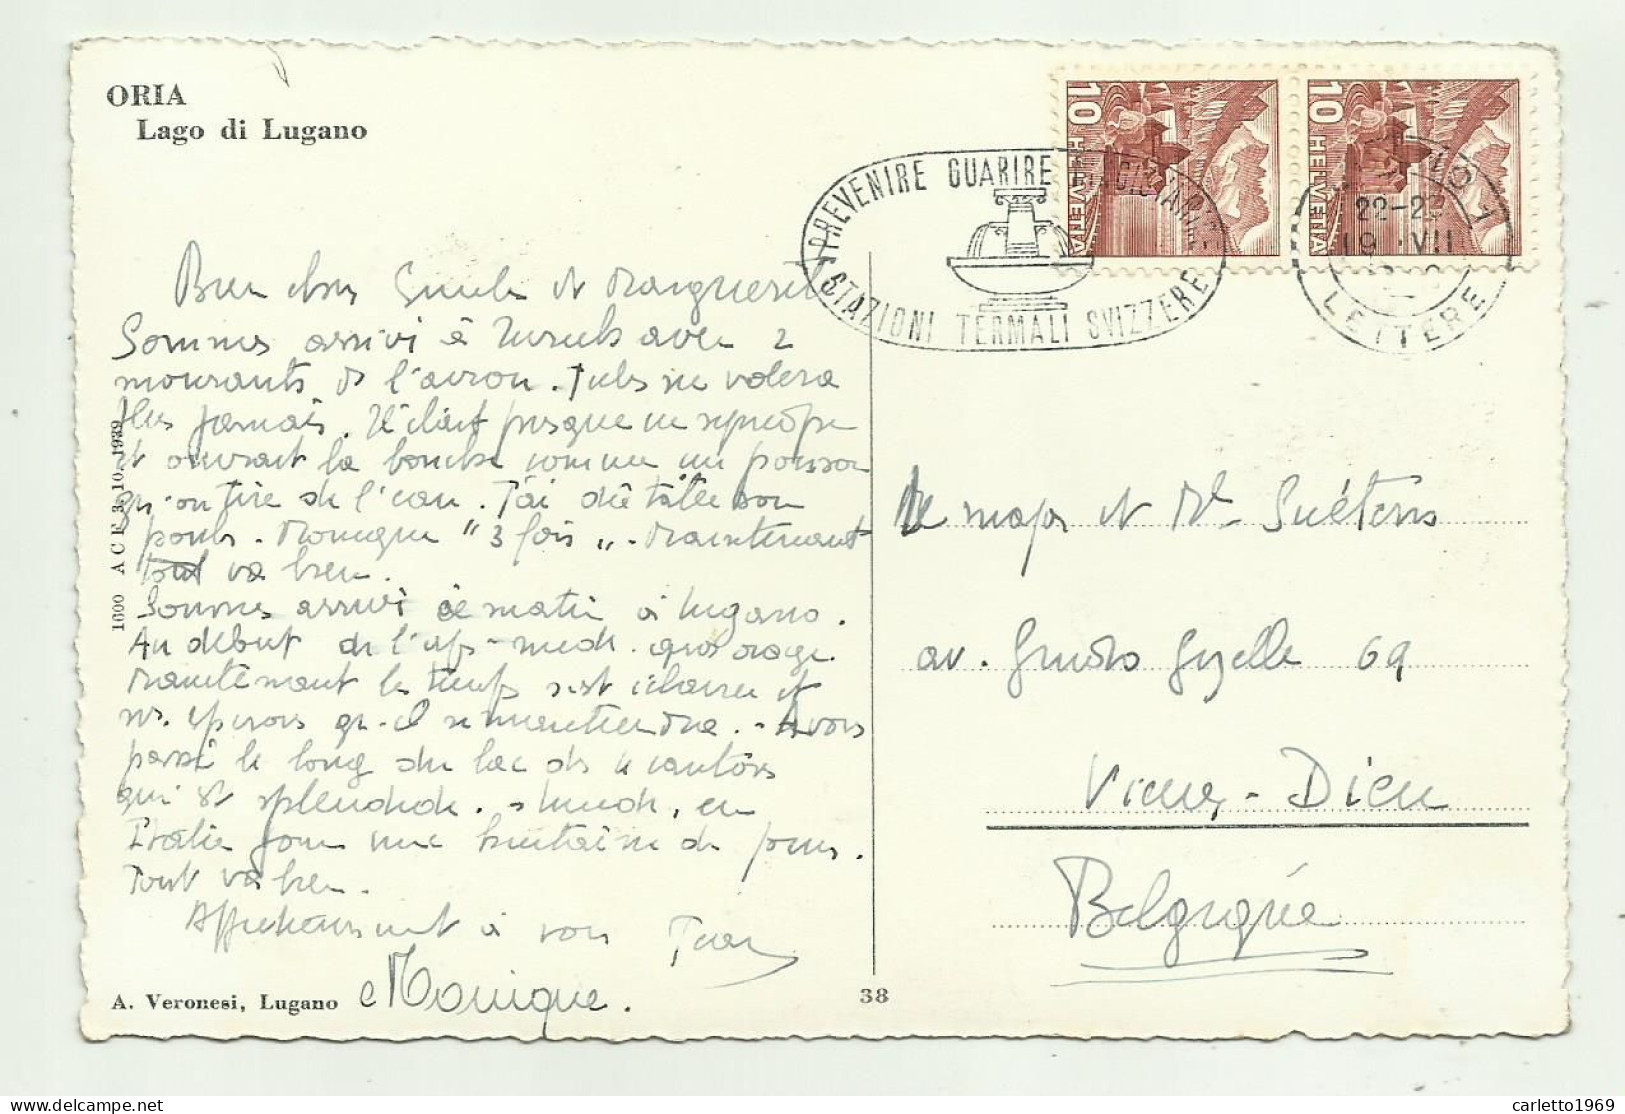 ORIA
Lago di Lugano
10 HELVETIA
10 HELVETIA
PREVENIRE GUARIRE
STAZIONI TERMALI SVIZZERE
22-2
19 VII
LETTERE
1
Bien chers et Marguerite
Sommes arrivés à avec 2
mourants de l'avion. Jules ne volera
plus jamais. Il était presque en syncope
et ouvrait la bouche comme un poisson
qu'on tire de l'eau. J'ai dû tâter son
pouls. Monique "3 fois". Maintenant
tout va bien.
Sommes arrivés ce matin à Lugano.
Au début de l'après-midi gros orage.
Maintenant le temps s'est éclairci et
ns. espérons qu'il se maintiendra. - Avons
passé le long du lac des 4 cantons
qui est splendide. en
Italie pour une huitaine de jours.
Tout va bien.
Affectueusement à vous
Monique.
1600 ACF 3.10.1939
A. Veronesi, Lugano
38
Le major et Me Suétens
av. Gisèle 69
Vieux-Dieu
Belgique
carletto1969